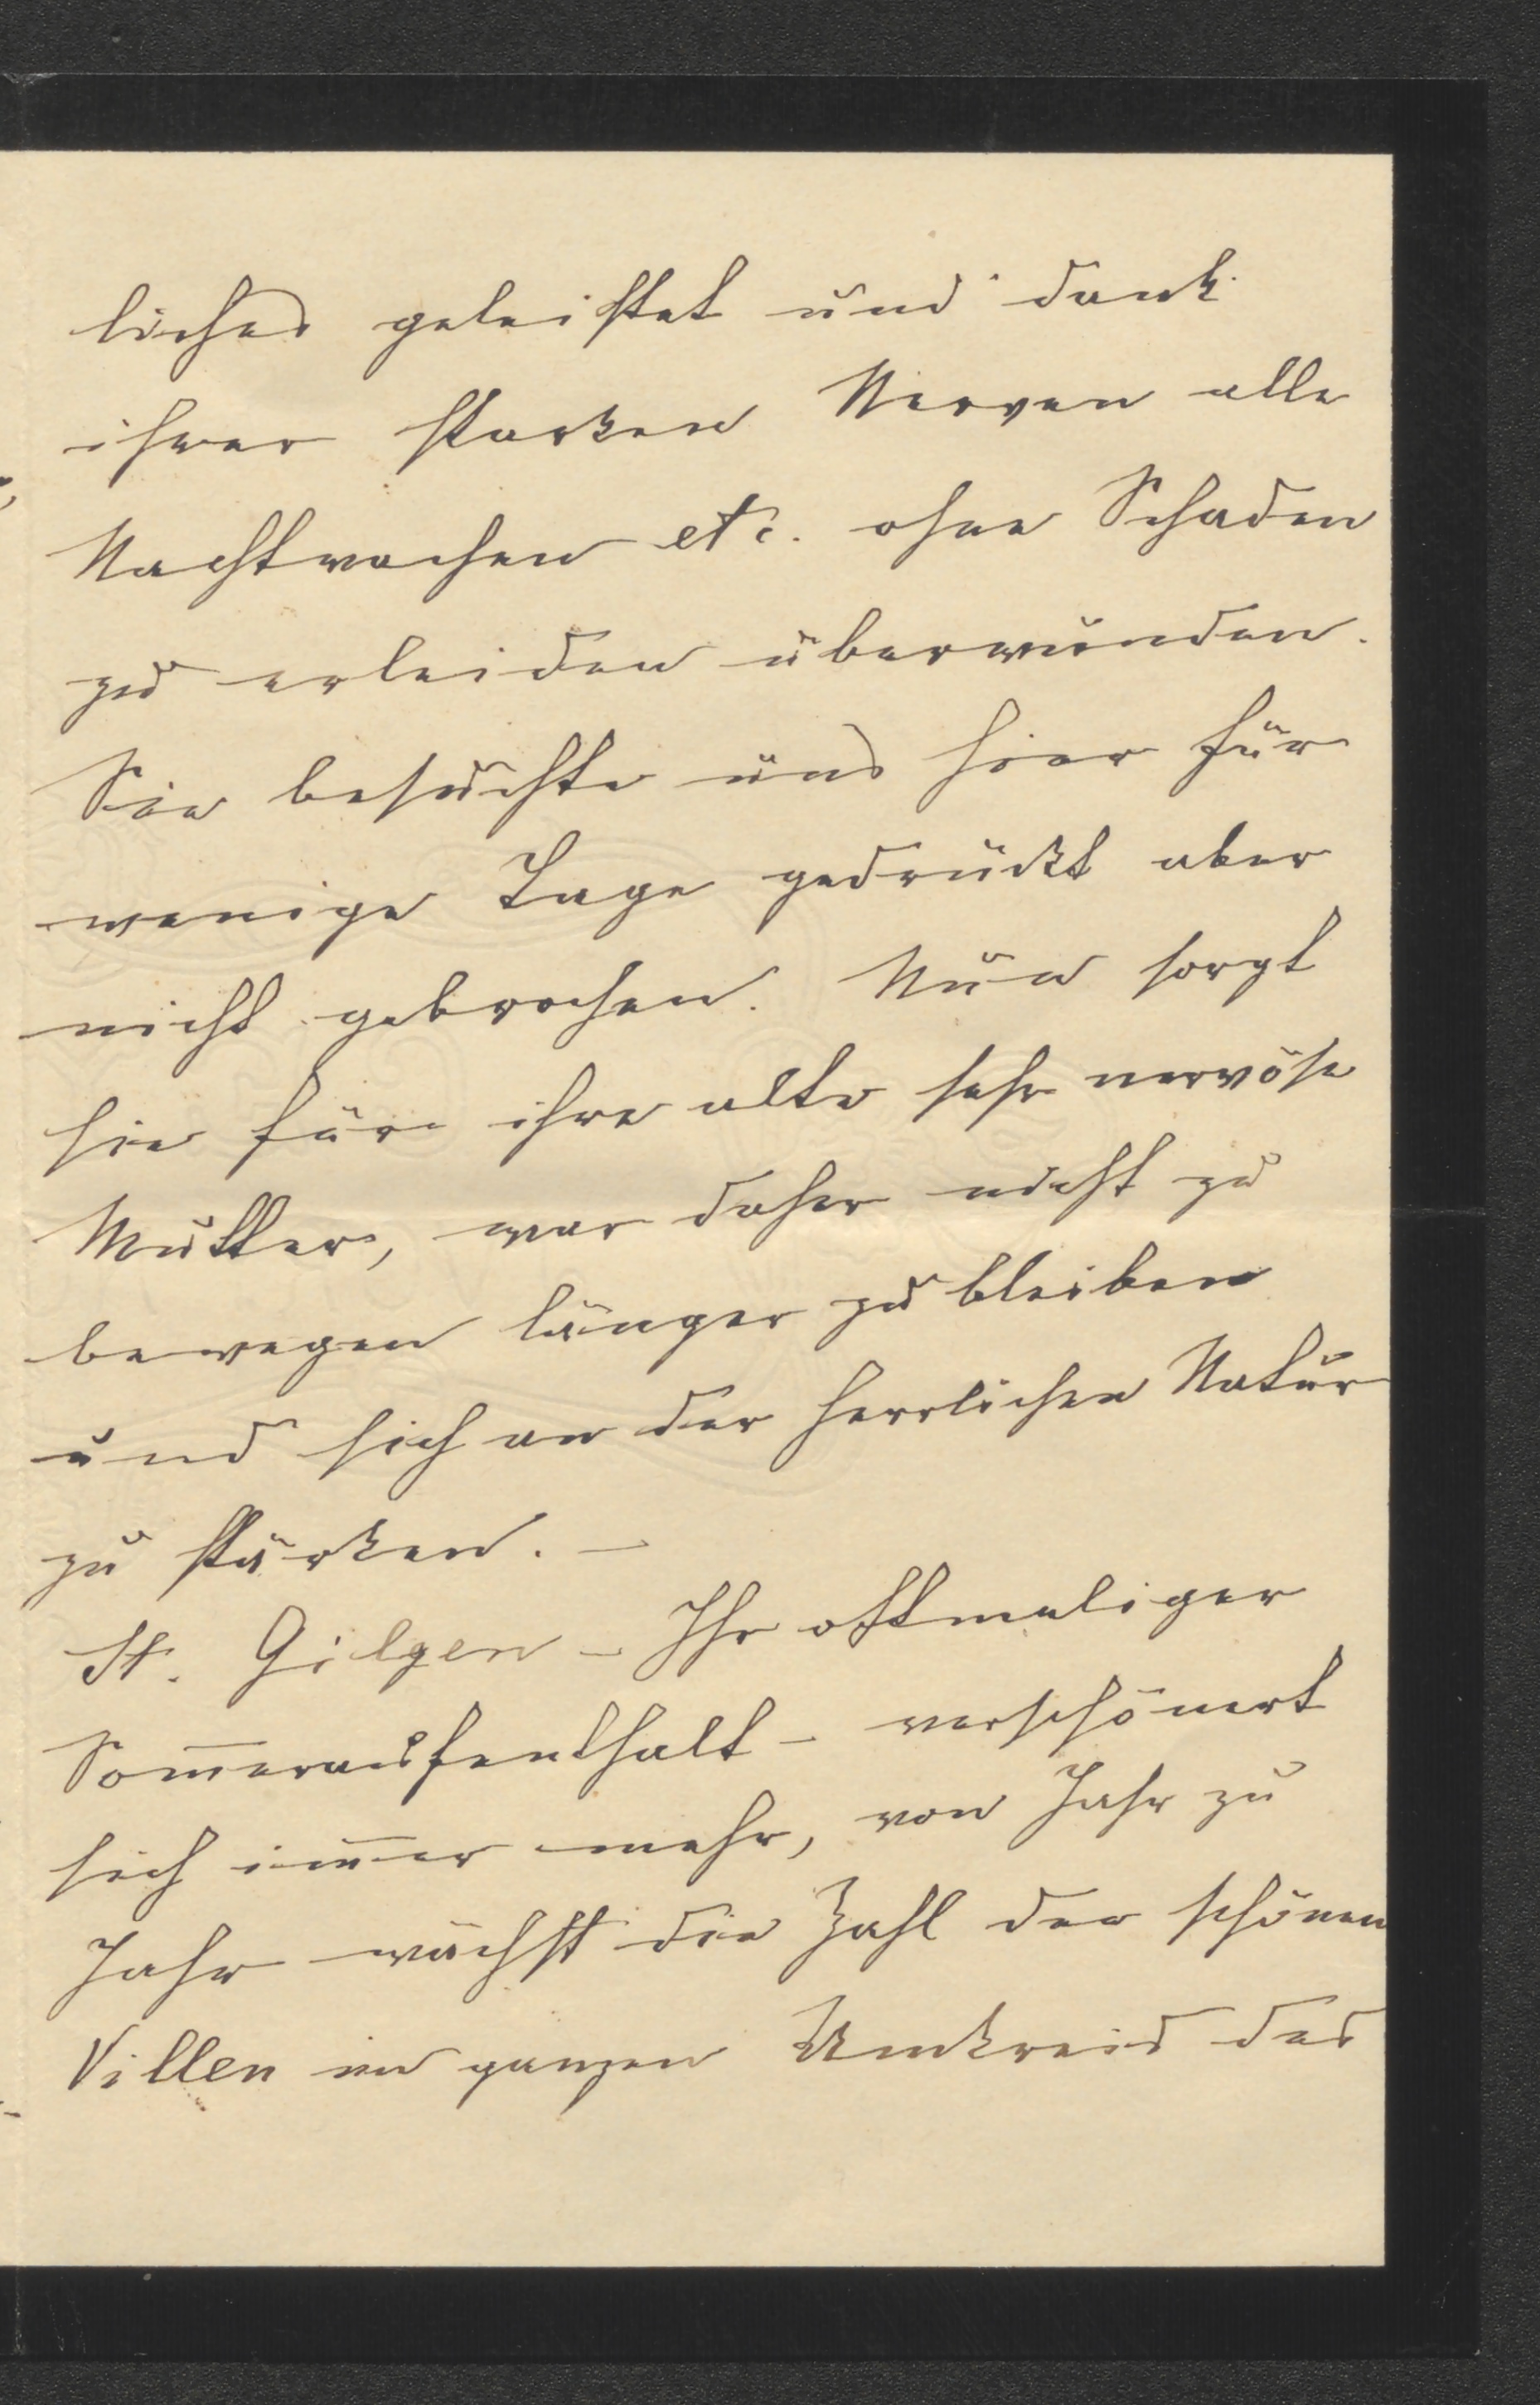 liches geleistet und dank
ihrer starken Nerven alle
Nachtwachen etc. ohne Schaden
zu erleiden überwunden.
Sie besuchte uns hier für
wenige Tage gedrückt aber
nicht gebrochen. Nun sorgt
sie für ihre alte sehr nervöse
Mutter, war daher nicht zu
bewegen länger zu bleiben
und sich an der herrlichen Natur
zu stärken. —
St. Gilgen – Ihr oftmaliger
Som̅eraufenthalt – verschönert
sich im̅er mehr, von Jahr zu
Jahr wächst die Zahl der schönen
Villen im ganzen Umkreis des